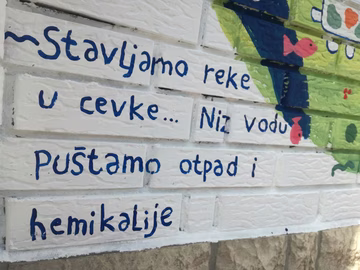 ~Stavljamo reke
u cevke... Niz vodu
puštamo otpad i
hemikalije